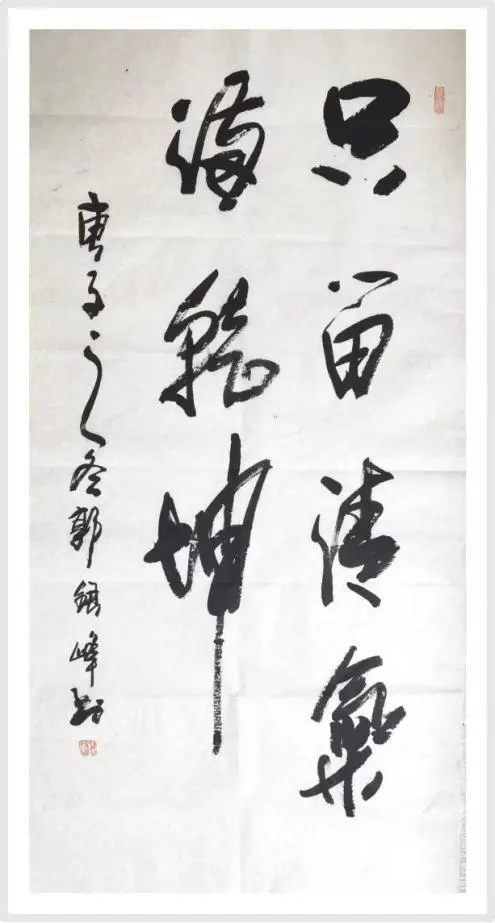 只留清氣
滿乾坤
庚子之冬郭銀峰書